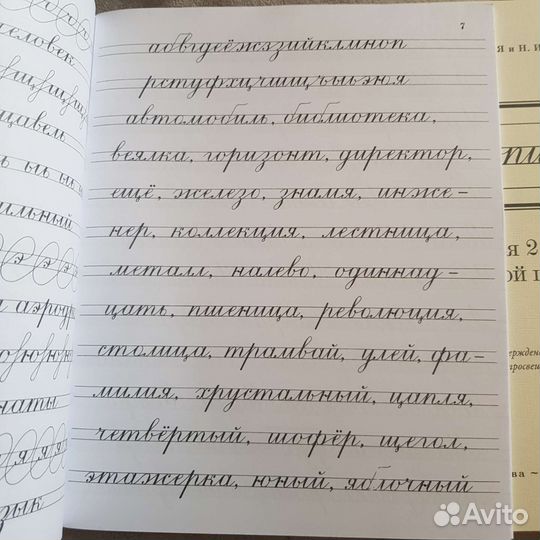 7
абвгдеёжзийклмноп
рстуфхцчшщъыьэюя
автомобиль, библиотека,
веялка, горизонт, директор,
ещё, железо, знамя, инже-
нер, коллекция, лестница,
металл, налево, одиннад-
цать, пшеница, революция,
столица, трамвай, улей, фа-
милия, хрустальный, цапля,
четвёртый, шофёр, щегол,
этажерка, юный, яблочный
человек
щавель
ы ы ы ы
язык
Я и Н. И
Avito